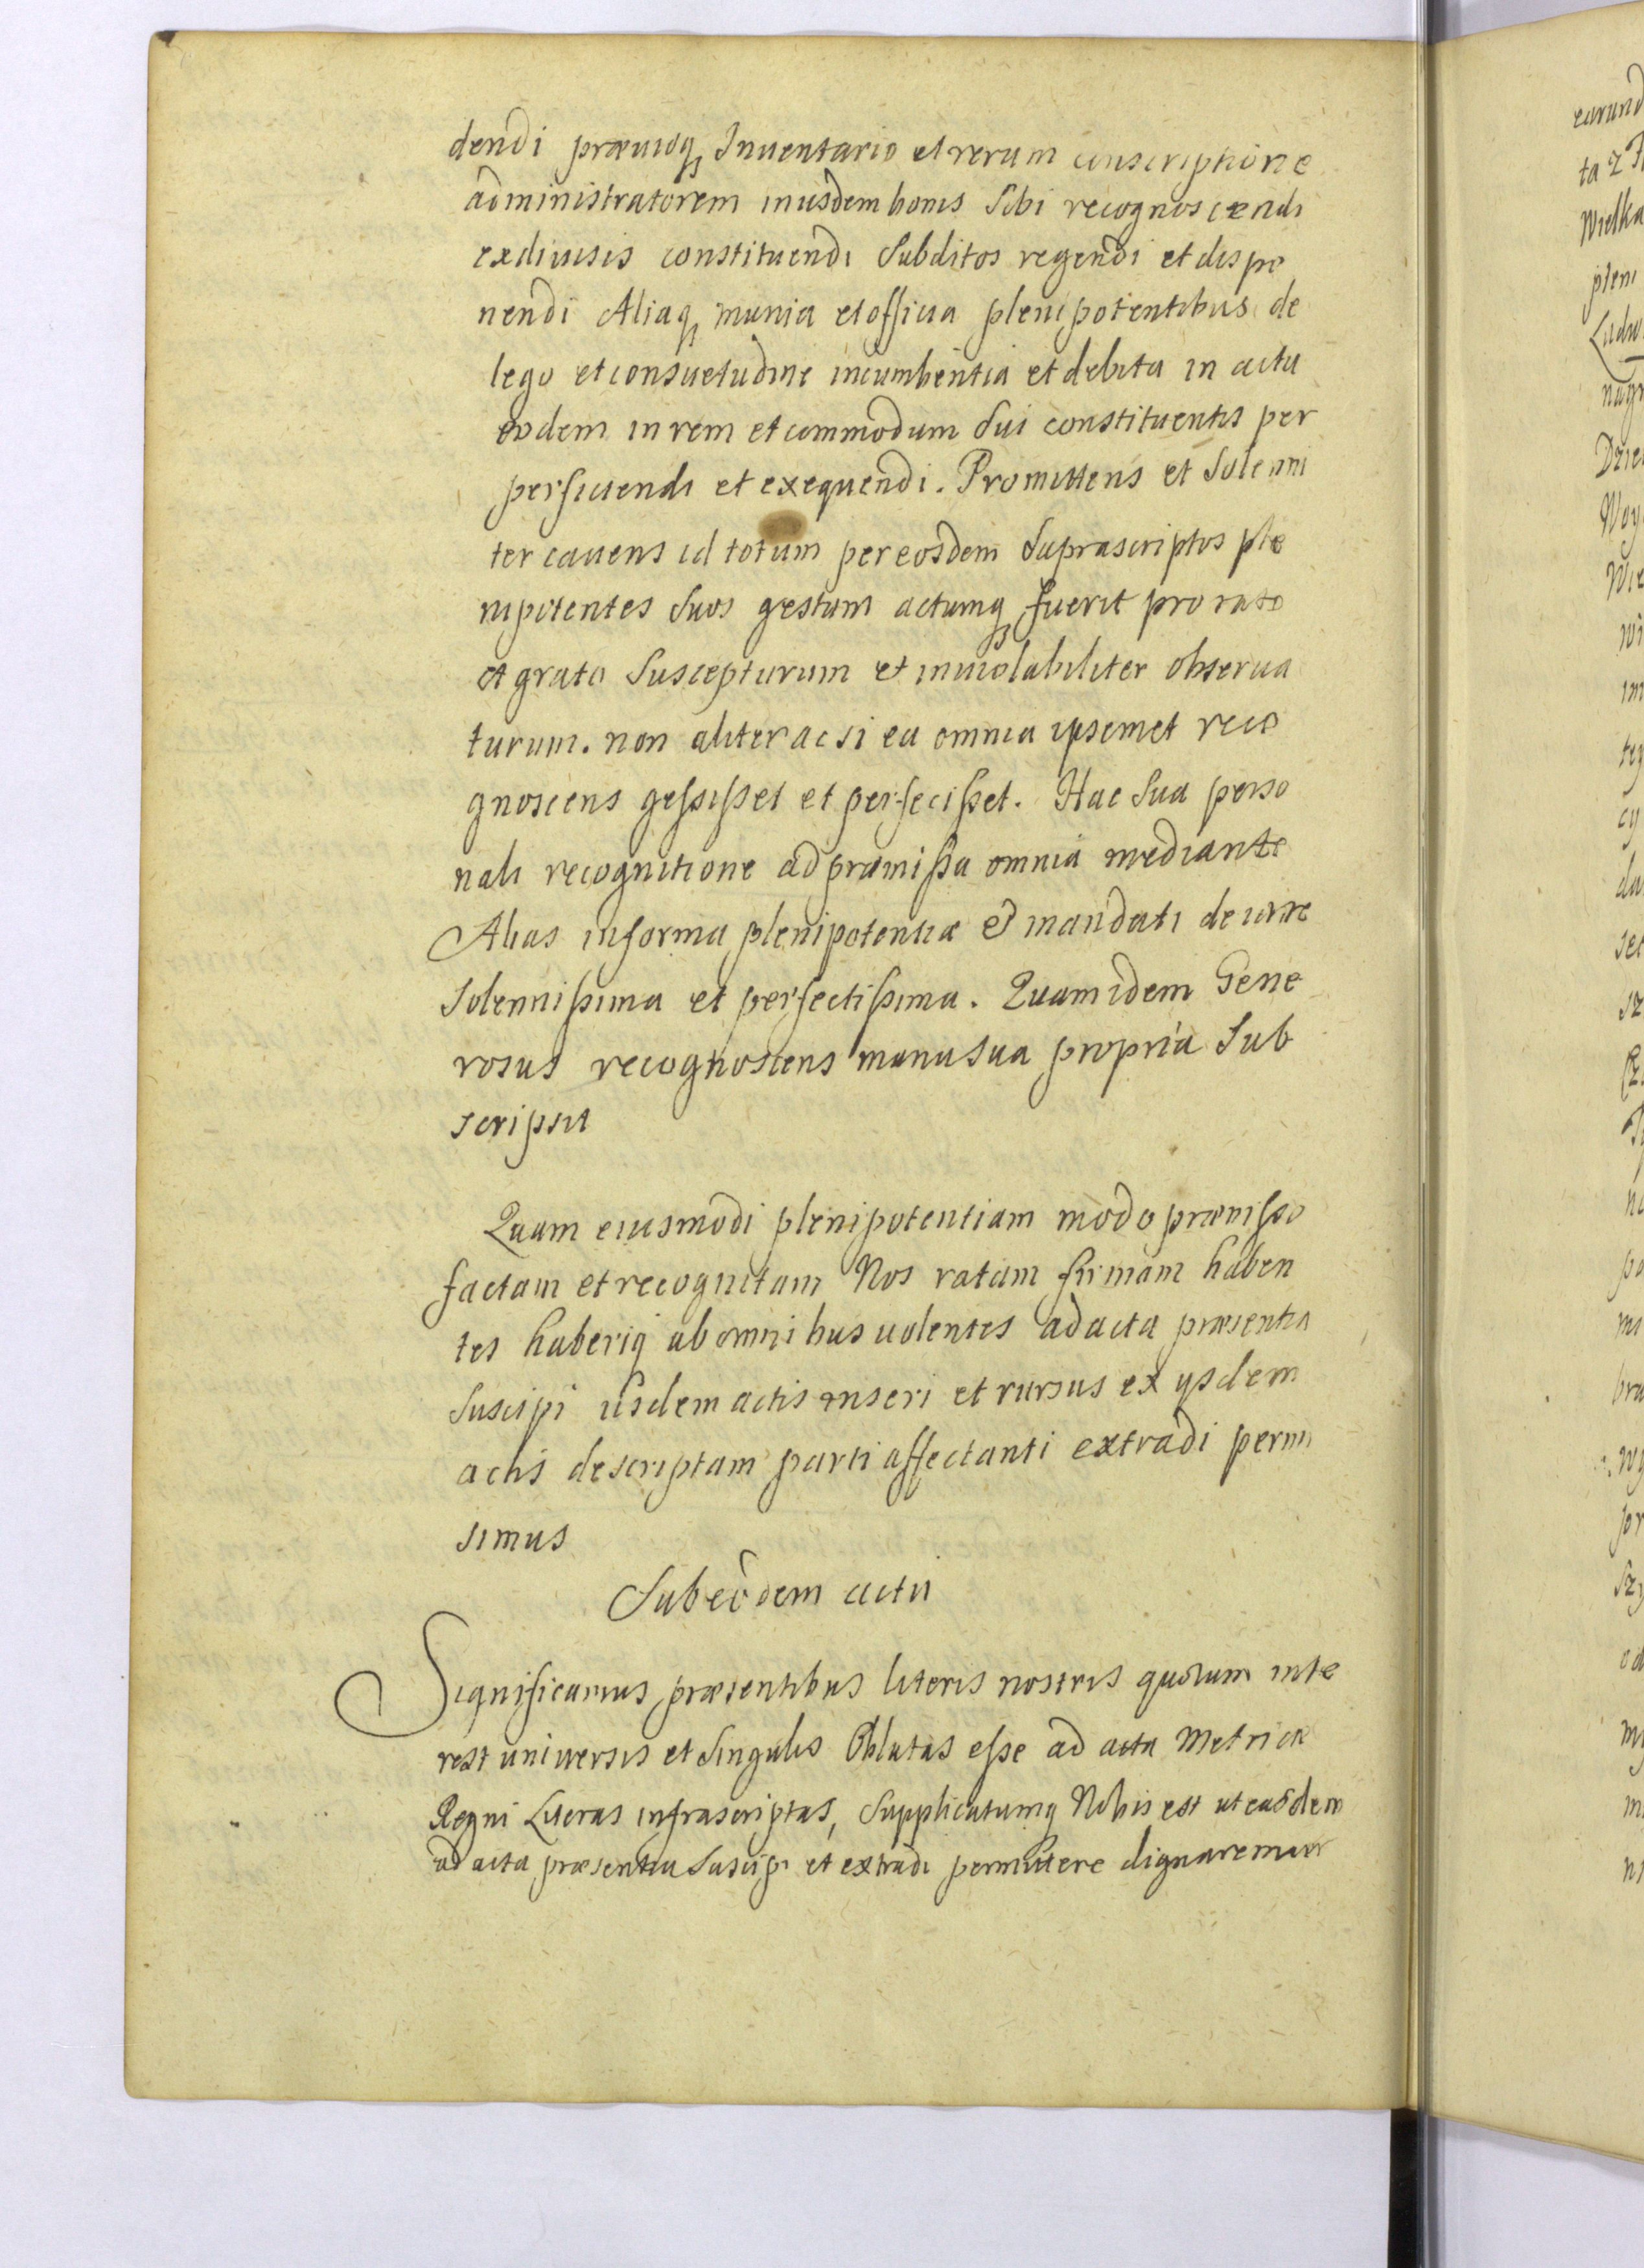 dendi præuioq Inuentario et rerum conscriptione
administratorem in iisdem bonis Sibi recognoscendi
ex diuisis constituendi Subditos regendi et dispo
nendi Aliaq munia et officia plenipotentibus de
lege et consuetudine incumbentia et debita in actu
eodem in rem et commodum Sui constituentis per
perficiendi et exequendi. Promittens et Solenni
ter cauens id totum per eosdem Suprascriptos ple
nipotentes Suos gestum actumq fuerit pro rato
et grato Suscepturum et inuiolabiliter obserua
turum. non aliter ac si ea omnia ipsemet reco
gnoscens gessisset et perfecisset. Hac Sua perso
nali recognitione ad præmissa omnia mediante
Alias in forma plenipotentiæ et mandati de iure
Solennissima et perfectissima. Quam idem Gene
rosus recognoscens manu sua propria Sub
scripsit
Quam eiusmodi plenipotentiam modo præmisso
factam et recognitam Nos ratam firmam haben
tes haberiq ab omnibus uolentes ad acta præsentia
Suscipi iisdem actis inseri et rursus ex ysdem
actis descriptam parti affectanti extradi permi
simus
Sub eodem actu
Significamus præsentibus literis nostris quorum inte
rest universis et Singulis Oblatas esse ad acta Metricæ
Regni Literas infrascriptas, Supplicatumq Nobis est ut easdem
ad acta præsentia Suscipi et extradi permittere dignaremur